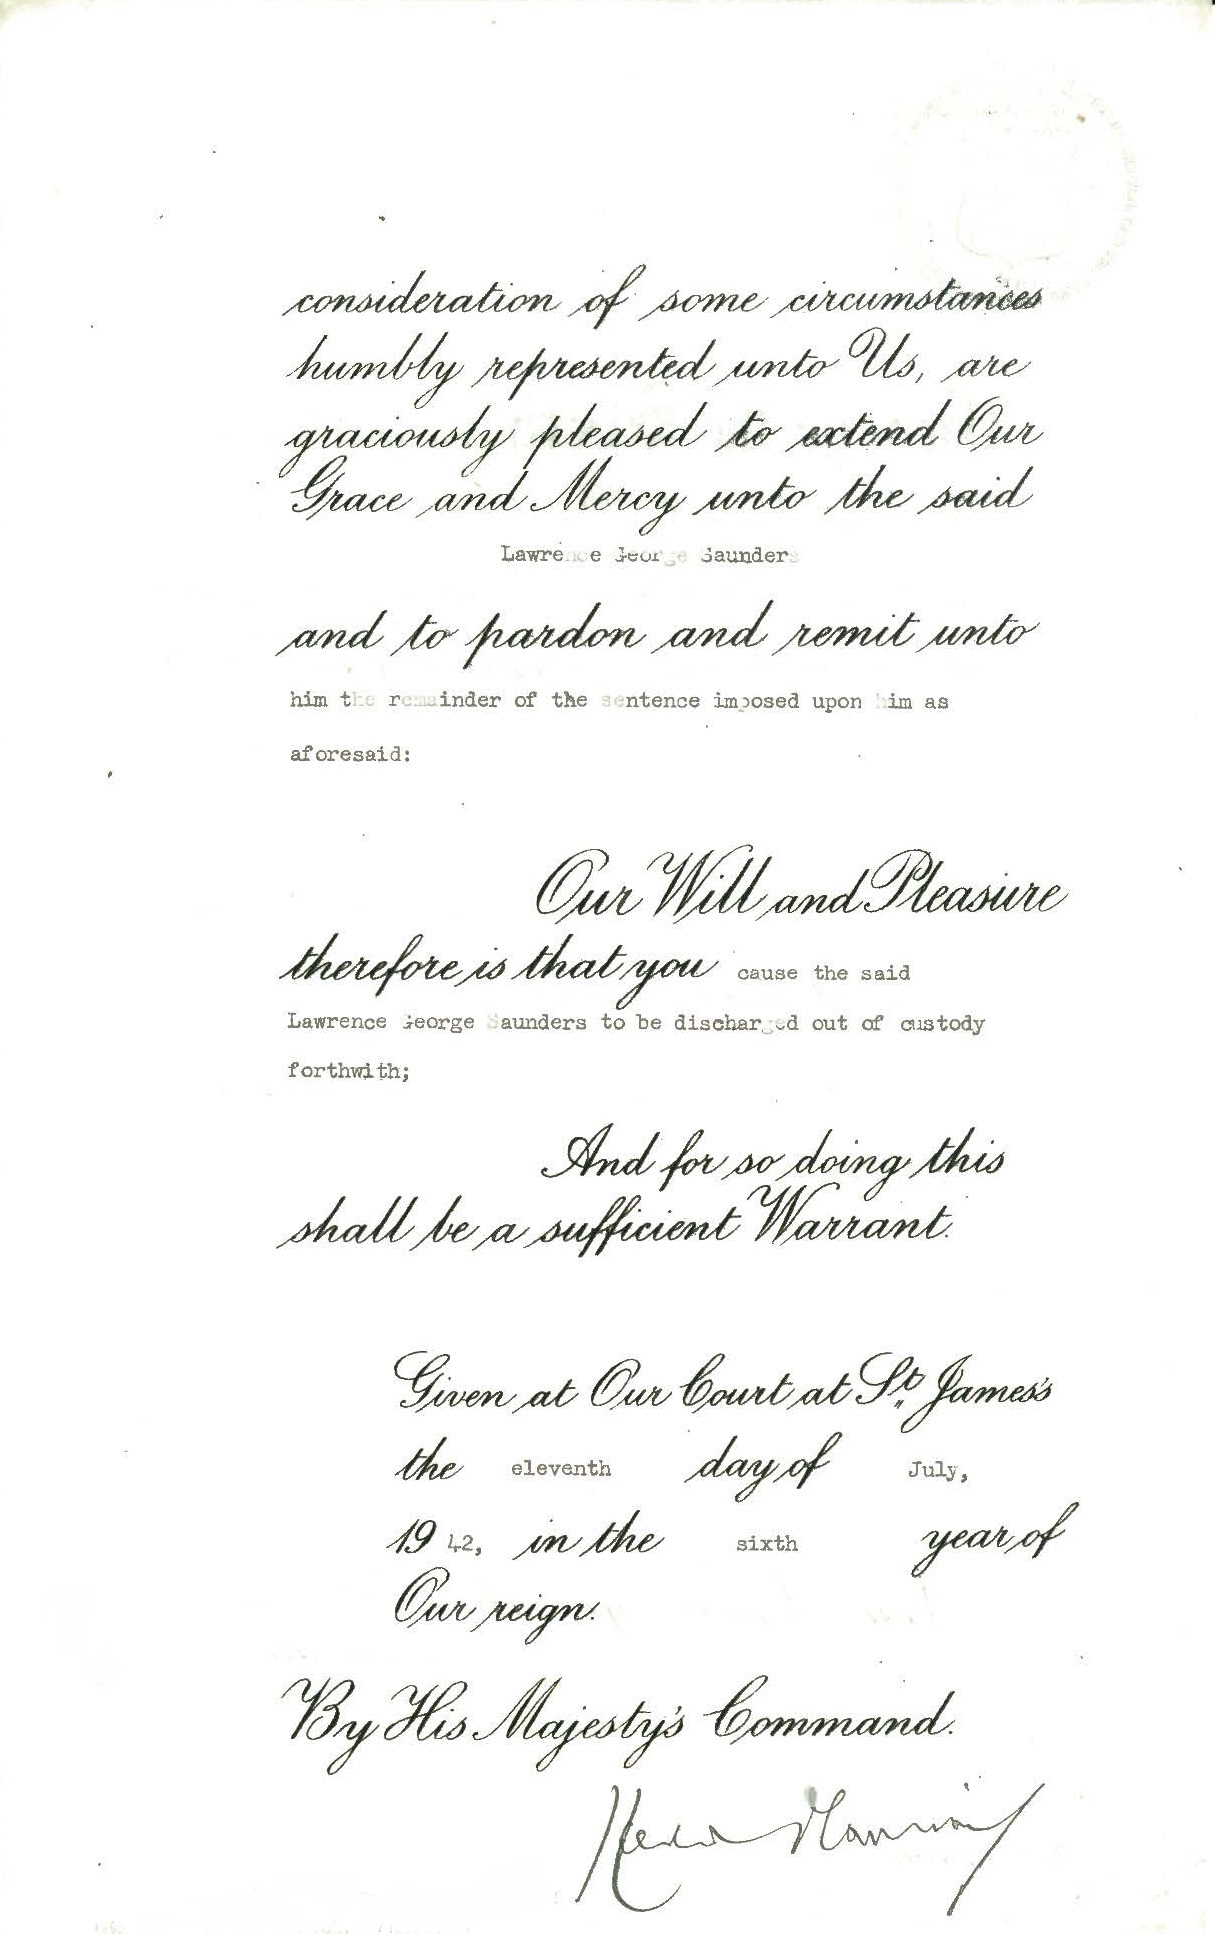 consideration of some circumstances
humbly represented unto Us, are
graciously pleased to extend Our
Grace and Mercy unto the said
Lawrence George Saunders
and to pardon and remit unto
him the remainder of the sentence imposed upon him as
aforesaid:
Our Will and Pleasure
therefore is that you cause the said
Lawrence George Saunders to be discharged out of custody
forthwith;
And for so doing this
shall be a sufficient Warrant.
Given at Our Court at St. James's
the eleventh day of July,
1942, in the sixth year of
Our reign.
By His Majesty's Command.